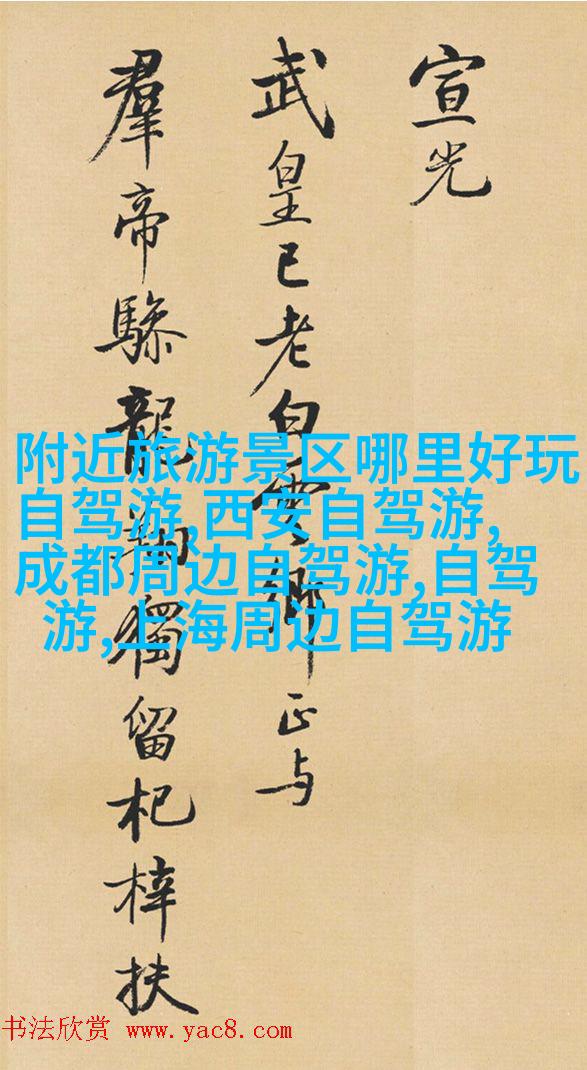 宣光
武皇已老白雲鄉正与
羣帝驂龍翔獨留杞梓扶
附近旅游景区哪里好玩
自驾游,西安自驾游,
成都周边自驾游,自驾
游,上海周边自驾游
书法欣赏 www.yac8.com